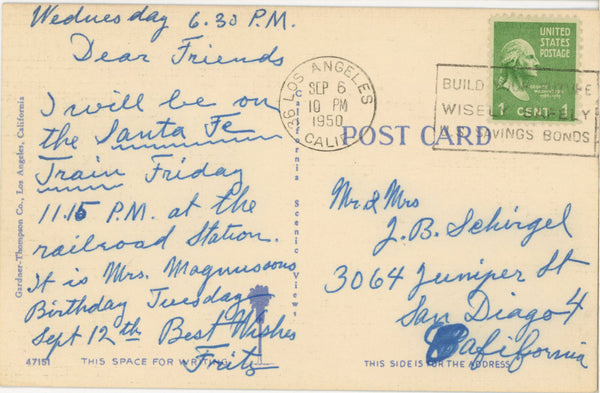 Wednesday 6.30 P.M.
Dear Friends
I will be on
the Santa Fe
Train Friday
11.15 P.M. at the
railroad Station.
It is Mrs. Magnusons
Birthday Tuesday
Sept 12th Best Wishes
Fritz
47151
THIS SPACE FOR WRITING
Gardner-Thompson Co., Los Angeles, California
California Scenic Views
36 LOS ANGELES
SEP 6
10 PM
1950
CALIF.
UNITED
STATES
POSTAGE
1 CENT 1
BUILD
WISELY
U.S. SAVINGS BONDS
POST CARD
Mr & Mrs
J. B. Schirgel
3064 Juniper St
San Diago 4
California
THIS SIDE IS FOR THE ADDRESS